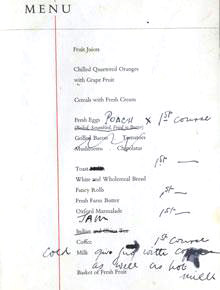 MENU
Fruit Juices
Chilled Quartered Oranges
with Grape Fruit
Cereals with Fresh Cream
Fresh Eggs POACH x 1st Course
(Boiled, Scrambled, Fried or Poached)
Grilled Bacon Tomatoes
Mushrooms Chipolatas
Toast 1st —
White and Wholemeal Bread
Fancy Rolls
Fresh Farm Butter 1st —
Oxford Marmalade
JAM
Indian and China Tea
Coffee 1st Course
Cold Milk give Jug with
as well as hot
milk
Basket of Fresh Fruit